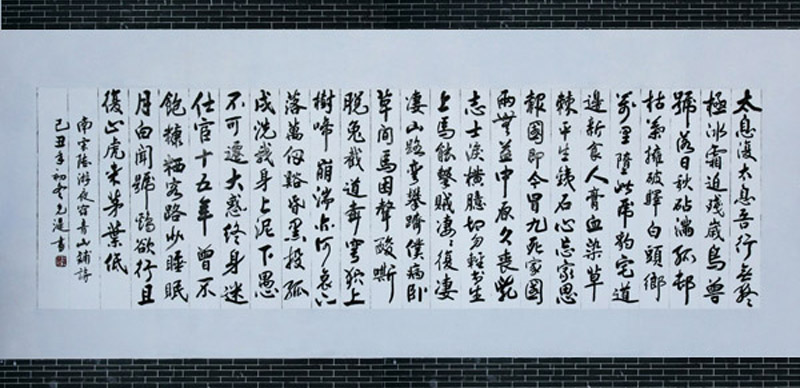 太息復太息吾行無終
極冰霜迫殘歲鳥獸
號落日秋砧滿孤邨
枯葉擁破驛白頭鄉
萬里墮此虎豹宅道
邊新食人膏血染草
棘平生鐵石心忘家思
報國即今冒九死家國
兩無益中原久喪亂
志士淚橫臆切勿輕書生
上馬能擊賊凄凄復凄
凄山路攀躋僕病臥
草間馬困聲酸嘶
脫兔截道奔穹猿上
樹啼崩湍亦何哀
落萬仞谿昏黑投孤
戍洗我身上泥下愚
不可遷大惑終身迷
仕宦十五年曾不
飽糠粞客路少睡眠
月白聞號鵾欲行且
復止虎來茅葉低
南宋陸游夜宿青山鋪詩
己丑年初冬書